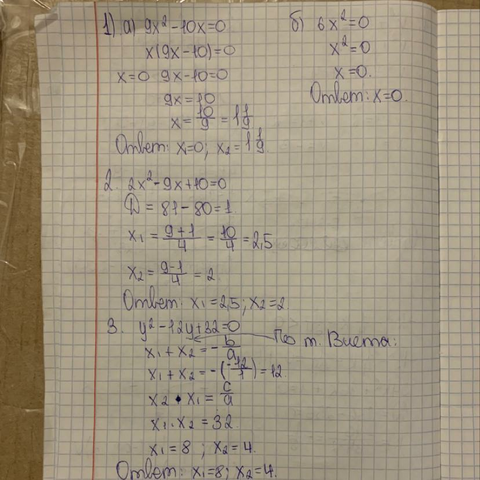 1) а) 9x² - 10x = 0
x(9x - 10) = 0
x = 0 9x - 10 = 0
9x = 10
x = 10/9 = 1 1/9
Ответ: x₁=0; x₂ = 1 1/9
б) 6x² = 0
x² = 0
x = 0.
Ответ: x = 0.
2. 2x² - 9x + 10 = 0
D = 81 - 80 = 1
x₁ = (9+1)/4 = 10/4 = 2,5
x₂ = (9-1)/4 = 2
Ответ: x₁ = 2,5; x₂ = 2
3. y² - 12y + 32 = 0
По т. Виета:
x₁ + x₂ = -b/a
x₁ + x₂ = -(-12/1) = 12
x₂ · x₁ = c/a
x₁ · x₂ = 32
x₁ = 8 ; x₂ = 4.
Ответ: x₁ = 8; x₂ = 4.